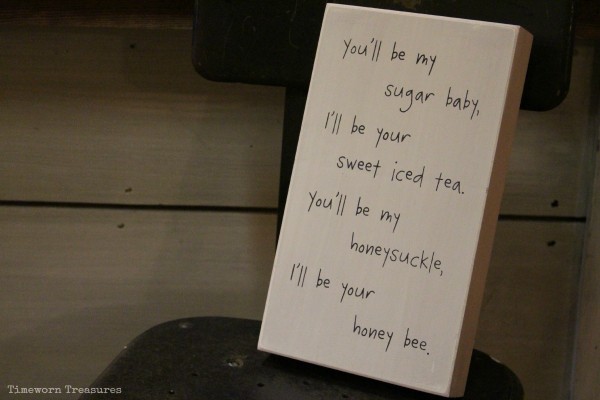 you'll be my
sugar baby,
I'll be your
sweet iced tea.
you'll be my
honeysuckle,
I'll be your
honey bee.
Timeworn Treasures